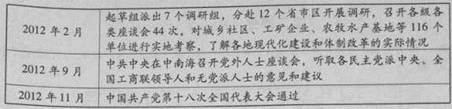 起草组派出7个调研组，分赴12个省市区开展调研，召开各级各
2012年2月
类座谈会44次，对城乡社区、工矿企业、农牧水产基地等116个
单位进行实地考察，了解各地现代化建设和体制改革的实际情况
2012年9月
中共中央在中南海召开党外人士座谈会，听取各民主党派中央、全
国工商联领导人和无党派人士的意见和建议
2012年11月
中国共产党第十八次全国代表大会通过